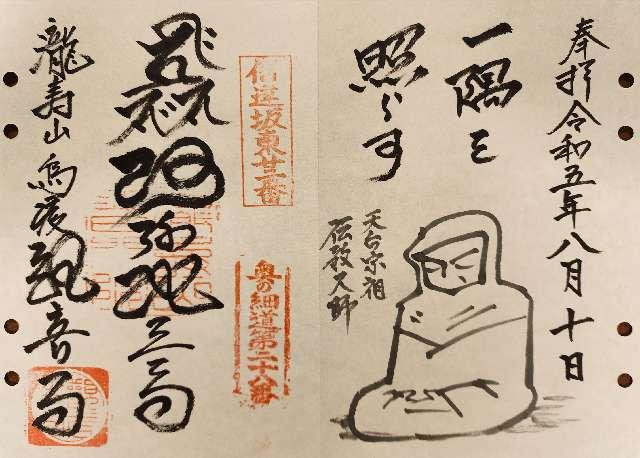 奉拝 令和五年八月十日
一隅を
照らす
天台宗祖
伝教大師
信達坂東廿一番
奥の細道第二十八番
阿弥陀三尊
龍寿山 観音寺